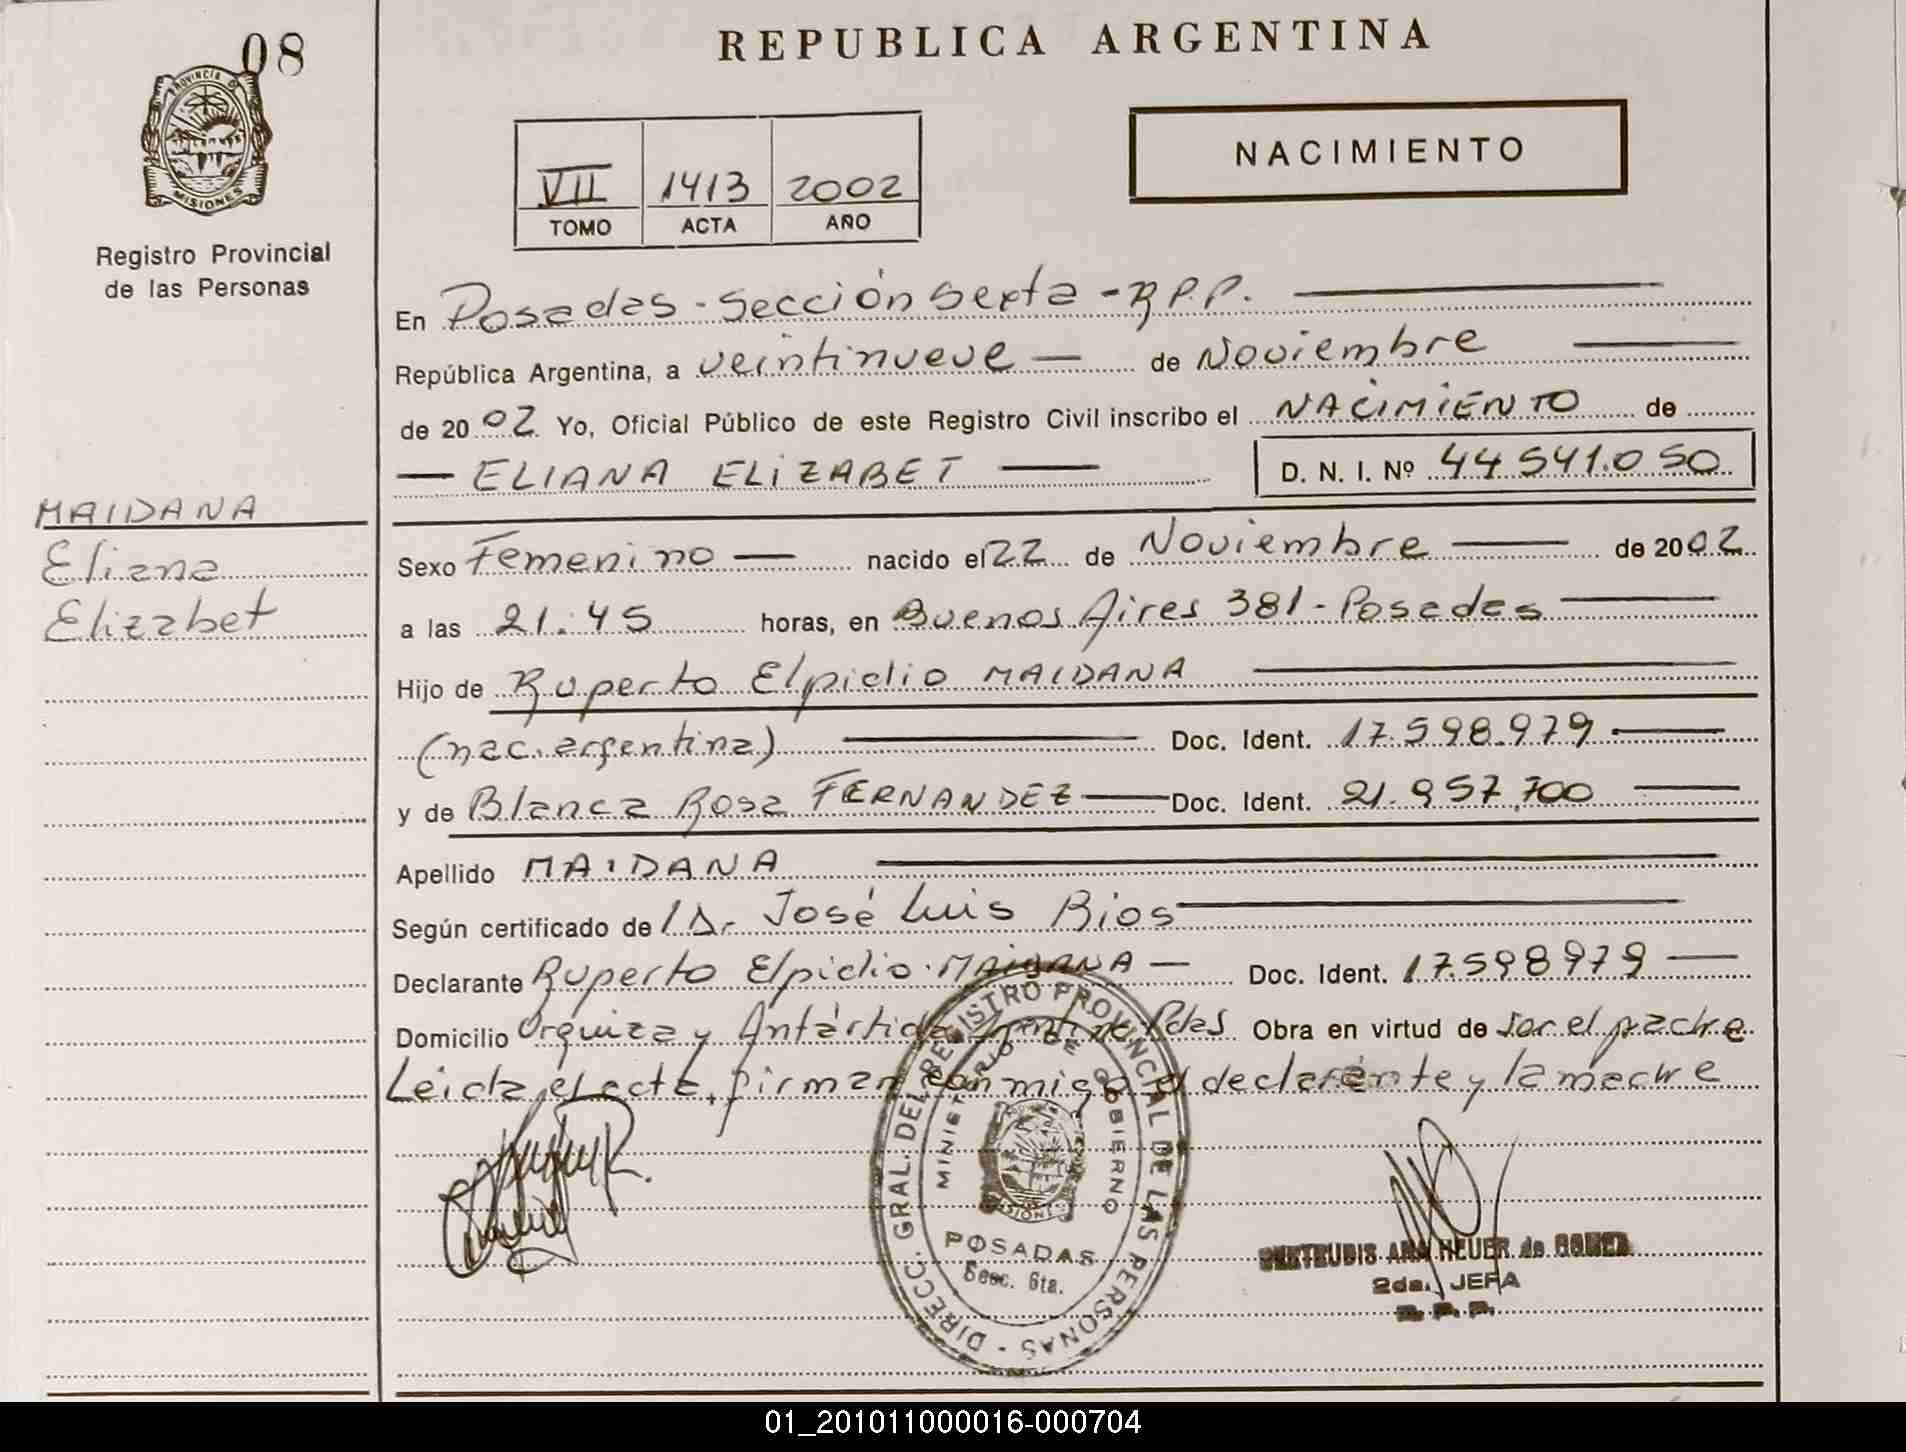 08
REPUBLICA ARGENTINA
PROVINCIA DE
MISIONES
Registro Provincial
de las Personas
VII 1413 2002
TOMO ACTA AÑO
NACIMIENTO
En Posadas - Sección Sexta - R.P.P.
República Argentina, a veintinueve de Noviembre
de 2002 Yo, Oficial Público de este Registro Civil inscribo el NACIMIENTO de
ELIANA ELIZABET D. N. I. Nº 44.541.050
MAIDANA
Eliana
Elizabet
Sexo Femenino nacido el 22 de Noviembre de 2002
a las 21:45 horas, en Buenos Aires 381 - Posadas
Hijo de Ruperto Elpidio MAIDANA
(nac. argentina) Doc. Ident. 17.598.979
y de Blanca Rosa FERNANDEZ Doc. Ident. 21.957.700
Apellido MAIDANA
Según certificado de Dr. José Luis Rios
Declarante Ruperto Elpidio MAIDANA Doc. Ident. 17.598979
Domicilio Urquiza y Antártida Argentina Pdas Obra en virtud de Ser el padre
Leida el acta, firman conmigo el declarante y la madre
DIRECC. GRAL. DEL REGISTRO PROVINCIAL DE LAS PERSONAS
MINISTERIO DE GOBIERNO
MISIONES
POSADAS
Secc. 6ta.
GERTRUDIS ANA HEUER de
2da. JEFA
R. P. P.
01_201011000016-000704